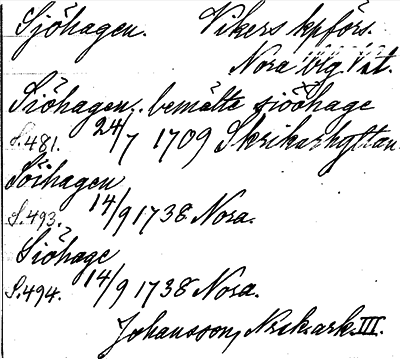 Sjöhagen. Vikers kpförs.
Nora blg Vst.
Siöhagen, bemälte siööhage
S.481. 24/7 1709 Skrikarhyttan
Söihagen
S.493. 14/9 1738 Nora.
Siöhage
S.494. 14/9 1738 Nora.
Johansson, Nrik.ark. III.